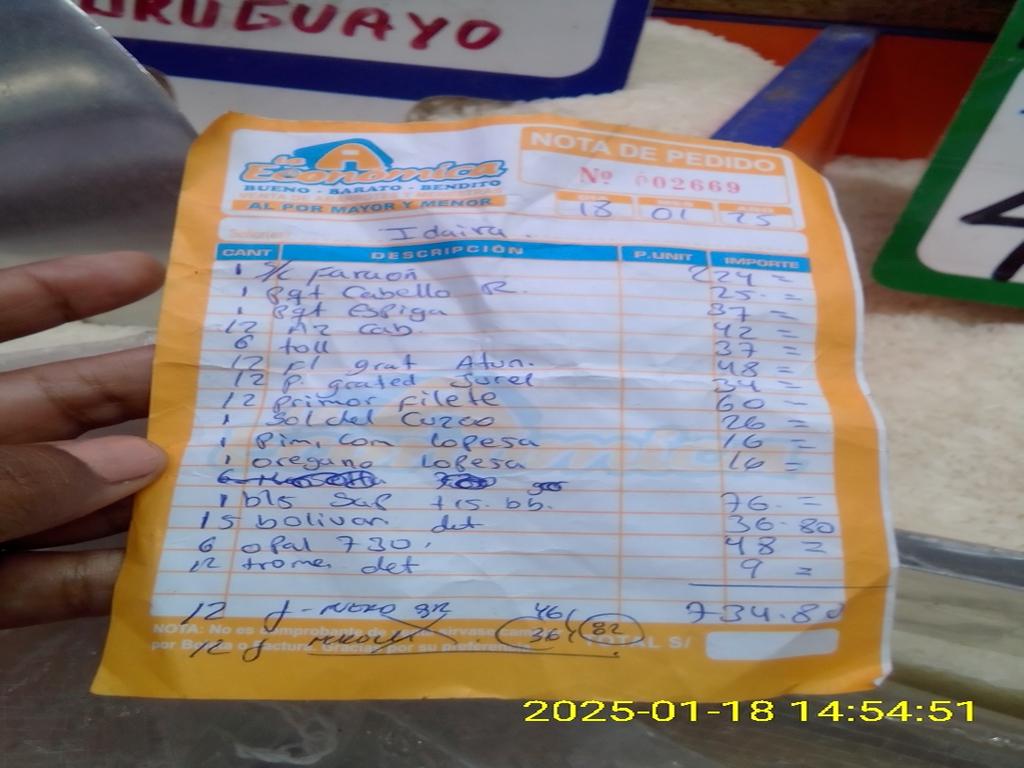 URUGUAYO
La Económica
BUENO - BARATO - BENDITO
AL POR MAYOR Y MENOR
NOTA DE PEDIDO
Nº 002669
18 01 25
Idaira
CANT DESCRIPCIÓN P.UNIT IMPORTE
1 S/C faraon 224 =
1 Pqt Cabello R. 25. =
1 Pqt espiga 37 =
12 Az Cab 42 =
6 toll 37 =
12 fl grat Atun. 48 =
12 P. grated Jurel 34 =
12 Primor filete 60 =
1 Sol del Cuzco 26 =
1 Pim, Com Lopesa 16 =
1 oregano Lopesa 16 =
6
1 bls Sap trs. bb. 76. =
15 bolivar det 36.80
6 opal 730. 48 =
12 trome det 9 =
734.80
12 46
NOTA: No es comprobante de
36 82
por Boleta o Factura. Gracias por su preferencia
TOTAL S/
12
2025-01-18 14:54:51